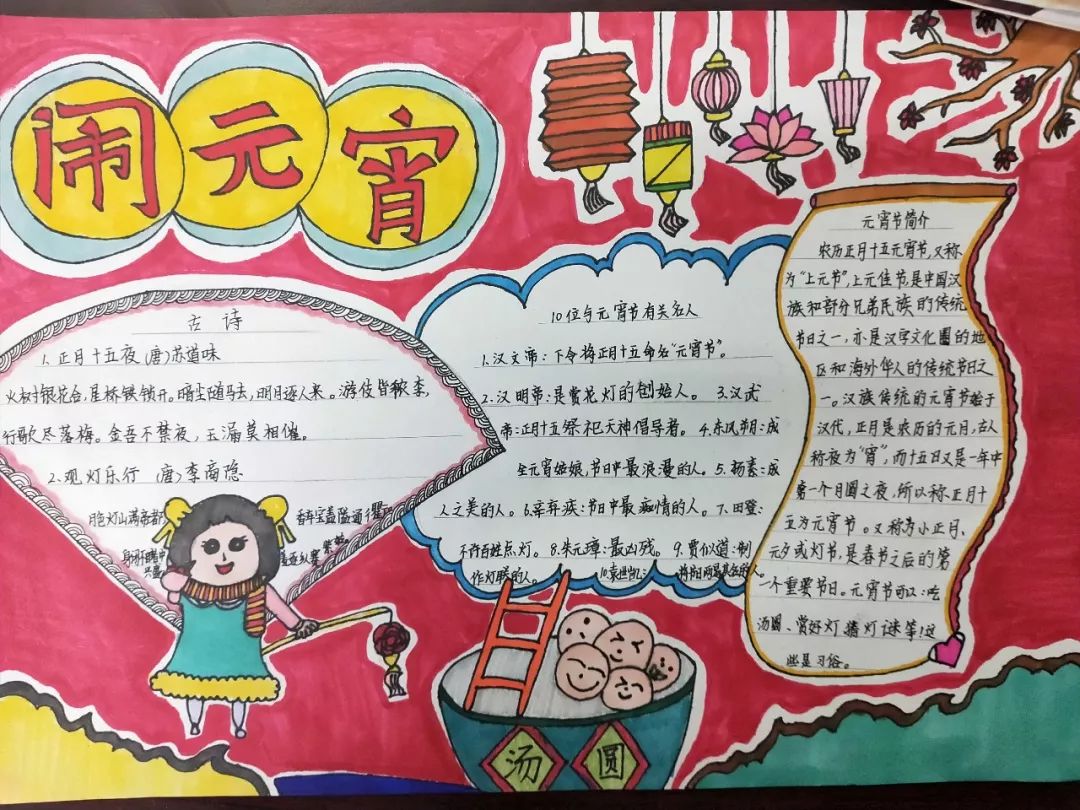 闹元宵
古诗
1.正月十五夜(唐)苏道味
火树银花合,星桥铁锁开。暗尘随马去,明月逐人来。游伎皆秾李,
行歌尽落梅。金吾不禁夜,玉漏莫相催。
2.观灯乐行 (唐)李商隐
月色灯山满帝都
香车宝盖隘通衢
身闲
兴
10位与元宵节有关名人
1.汉文帝:下令将正月十五命名“元宵节”。
2.汉明帝:是赏花灯的创始人。 3.汉武
帝:正月十五祭祀天神倡导者。4.东风朔:成
全元宵姑娘,节日中最浪漫的人。5.杨素:成
人之美的人。6.辛弃疾:节日中最痴情的人。7.田登:
不许百姓点灯。8.朱元璋:最凶残。9.贾似道:制
作灯的人。 10.袁世凯:
元宵节简介
农历正月十五元宵节,又称
为“上元节”,上元佳节,是中国汉
族和部分兄弟民族的传统
节日之一,亦是汉字文化圈的地
区和海外华人的传统节日之
一。汉族传统的元宵节始于
汉代,正月是农历的元月,古人
称夜为“宵”,而十五日又是一年中
第一个月圆之夜,所以称正月十
五为元宵节。又称为小正月、
元夕或灯节,是春节之后的第
一个重要节日。元宵节可以:吃
汤圆、赏好灯猜灯谜等!这
些是习俗。
汤圆